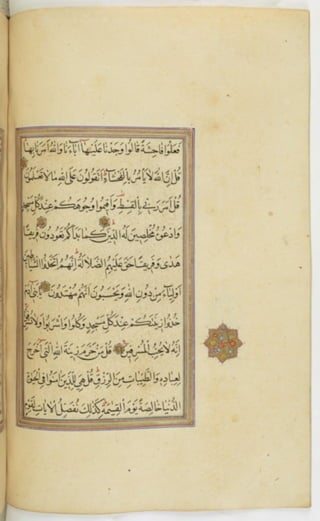 فَعَلُوا فَاحِشَةً قَالُوا وَجَدْنَا عَلَيْهَا آبَاءَنَا وَاللّٰهُ اَمَرَنَا بِهَا
قُلْ اِنَّ اللّٰهَ لَا يَأْمُرُ بِالْفَحْشَاءِ اَتَقُولُونَ عَلَى اللّٰهِ مَا لَا تَعْلَمُونَ
قُلْ اَمَرَ رَبِّي بِالْقِسْطِ وَاَقِيمُوا وُجُوهَكُمْ عِنْدَ كُلِّ مَسْجِدٍ
وَادْعُوهُ مُخْلِصِينَ لَهُ الدِّينَ كَمَا بَدَاَكُمْ تَعُودُونَ فَرِيقًا
هَدٰى وَفَرِيقًا حَقَّ عَلَيْهِمُ الضَّلَالَةُ اِنَّهُمُ اتَّخَذُوا الشَّيَاطِينَ
اَوْلِيَاءَ مِنْ دُونِ اللّٰهِ وَيَحْسَبُونَ اَنَّهُمْ مُهْتَدُونَ يَا بَنِي آدَمَ
خُذُوا زِينَتَكُمْ عِنْدَ كُلِّ مَسْجِدٍ وَكُلُوا وَاشْرَبُوا وَلَا تُسْرِفُوا
اِنَّهُ لَا يُحِبُّ الْمُسْرِفِينَ قُلْ مَنْ حَرَّمَ زِينَةَ اللّٰهِ الَّتِي اَخْرَجَ
لِعِبَادِهِ وَالطَّيِّبَاتِ مِنَ الرِّزْقِ قُلْ هِيَ لِلَّذِينَ آمَنُوا فِي الْحَيٰوةِ
الدُّنْيَا خَالِصَةً يَوْمَ الْقِيٰمَةِ كَذٰلِكَ نُفَصِّلُ الْآيَاتِ لِقَوْمٍ